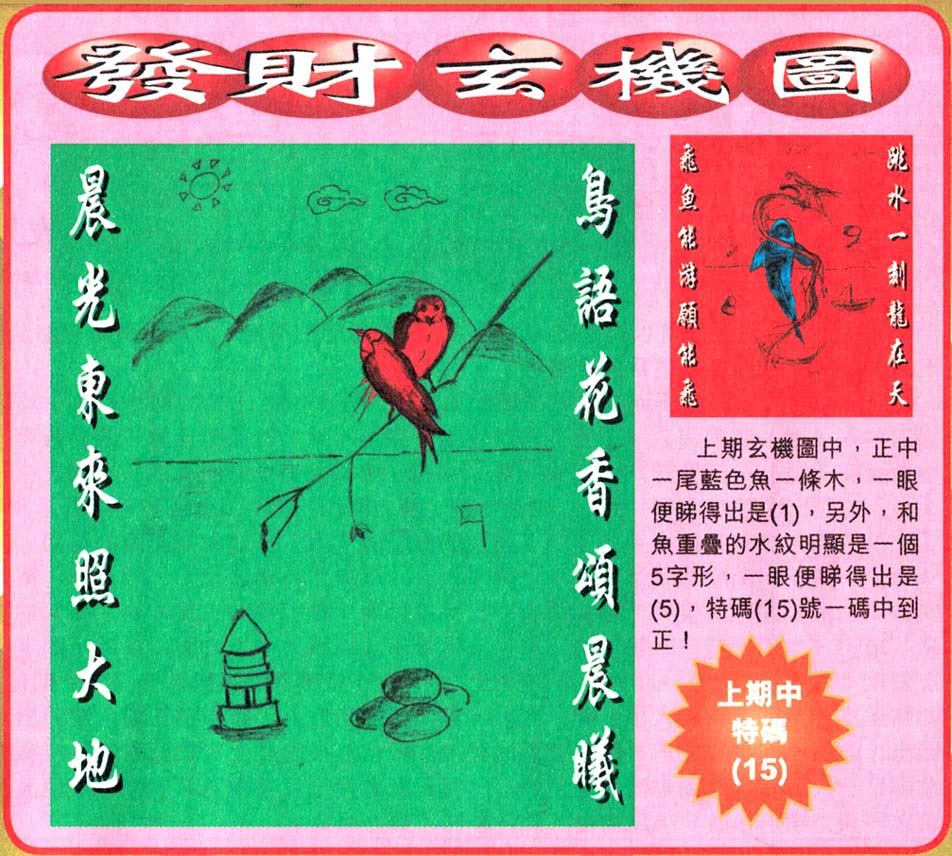 發財玄機圖
鳥語花香頌晨曦
晨光東來照大地
跳水一刻龍在天
飛魚能游願能飛
上期玄機圖中，正中
一尾藍色魚一條木，一眼
便睇得出是(1)，另外，和
魚重疊的水紋明顯是一個
5字形，一眼便睇得出是
(5)，特碼(15)號一碼中到
正！
上期中
特碼
(15)